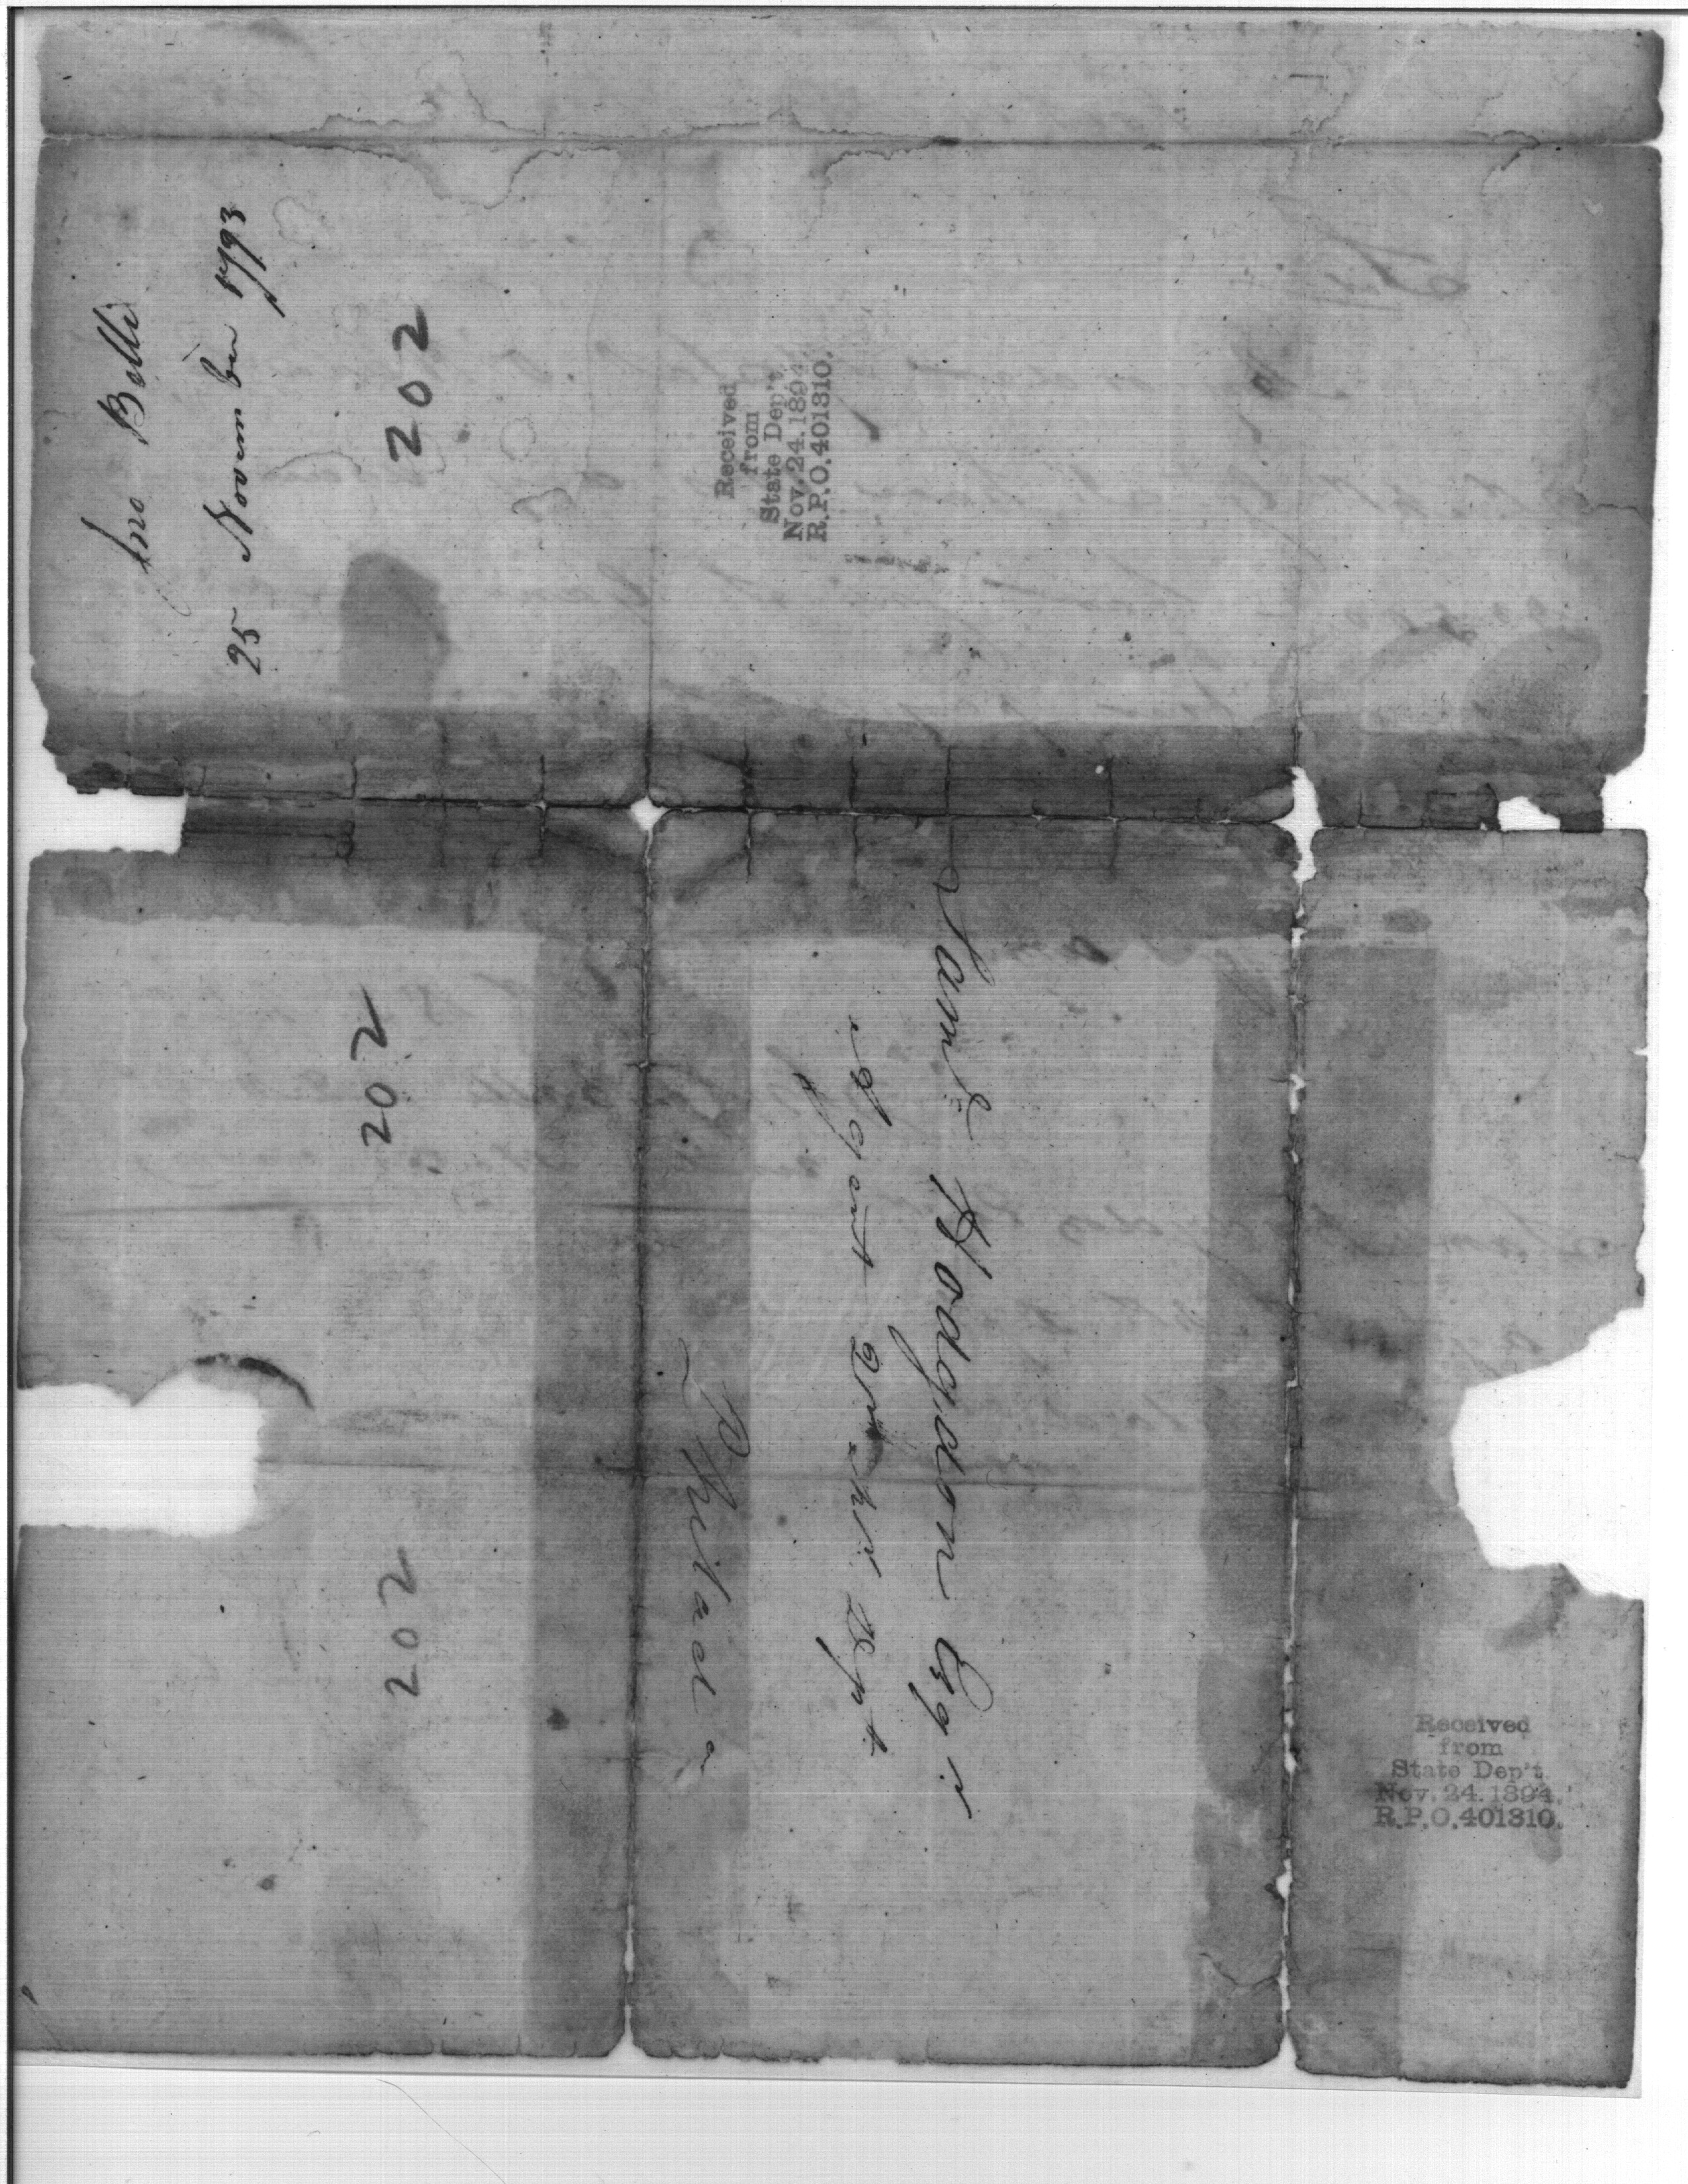 Jno Belli
25 November 1793
202
Received
from
State Dep't
Nov. 24. 1894.
R.P.O. 401310.
Saml Hodgdon Esqr
Agent War Dept
Philada
202
202
Received
from
State Dep't
Nov. 24. 1894.
R.P.O. 401310.